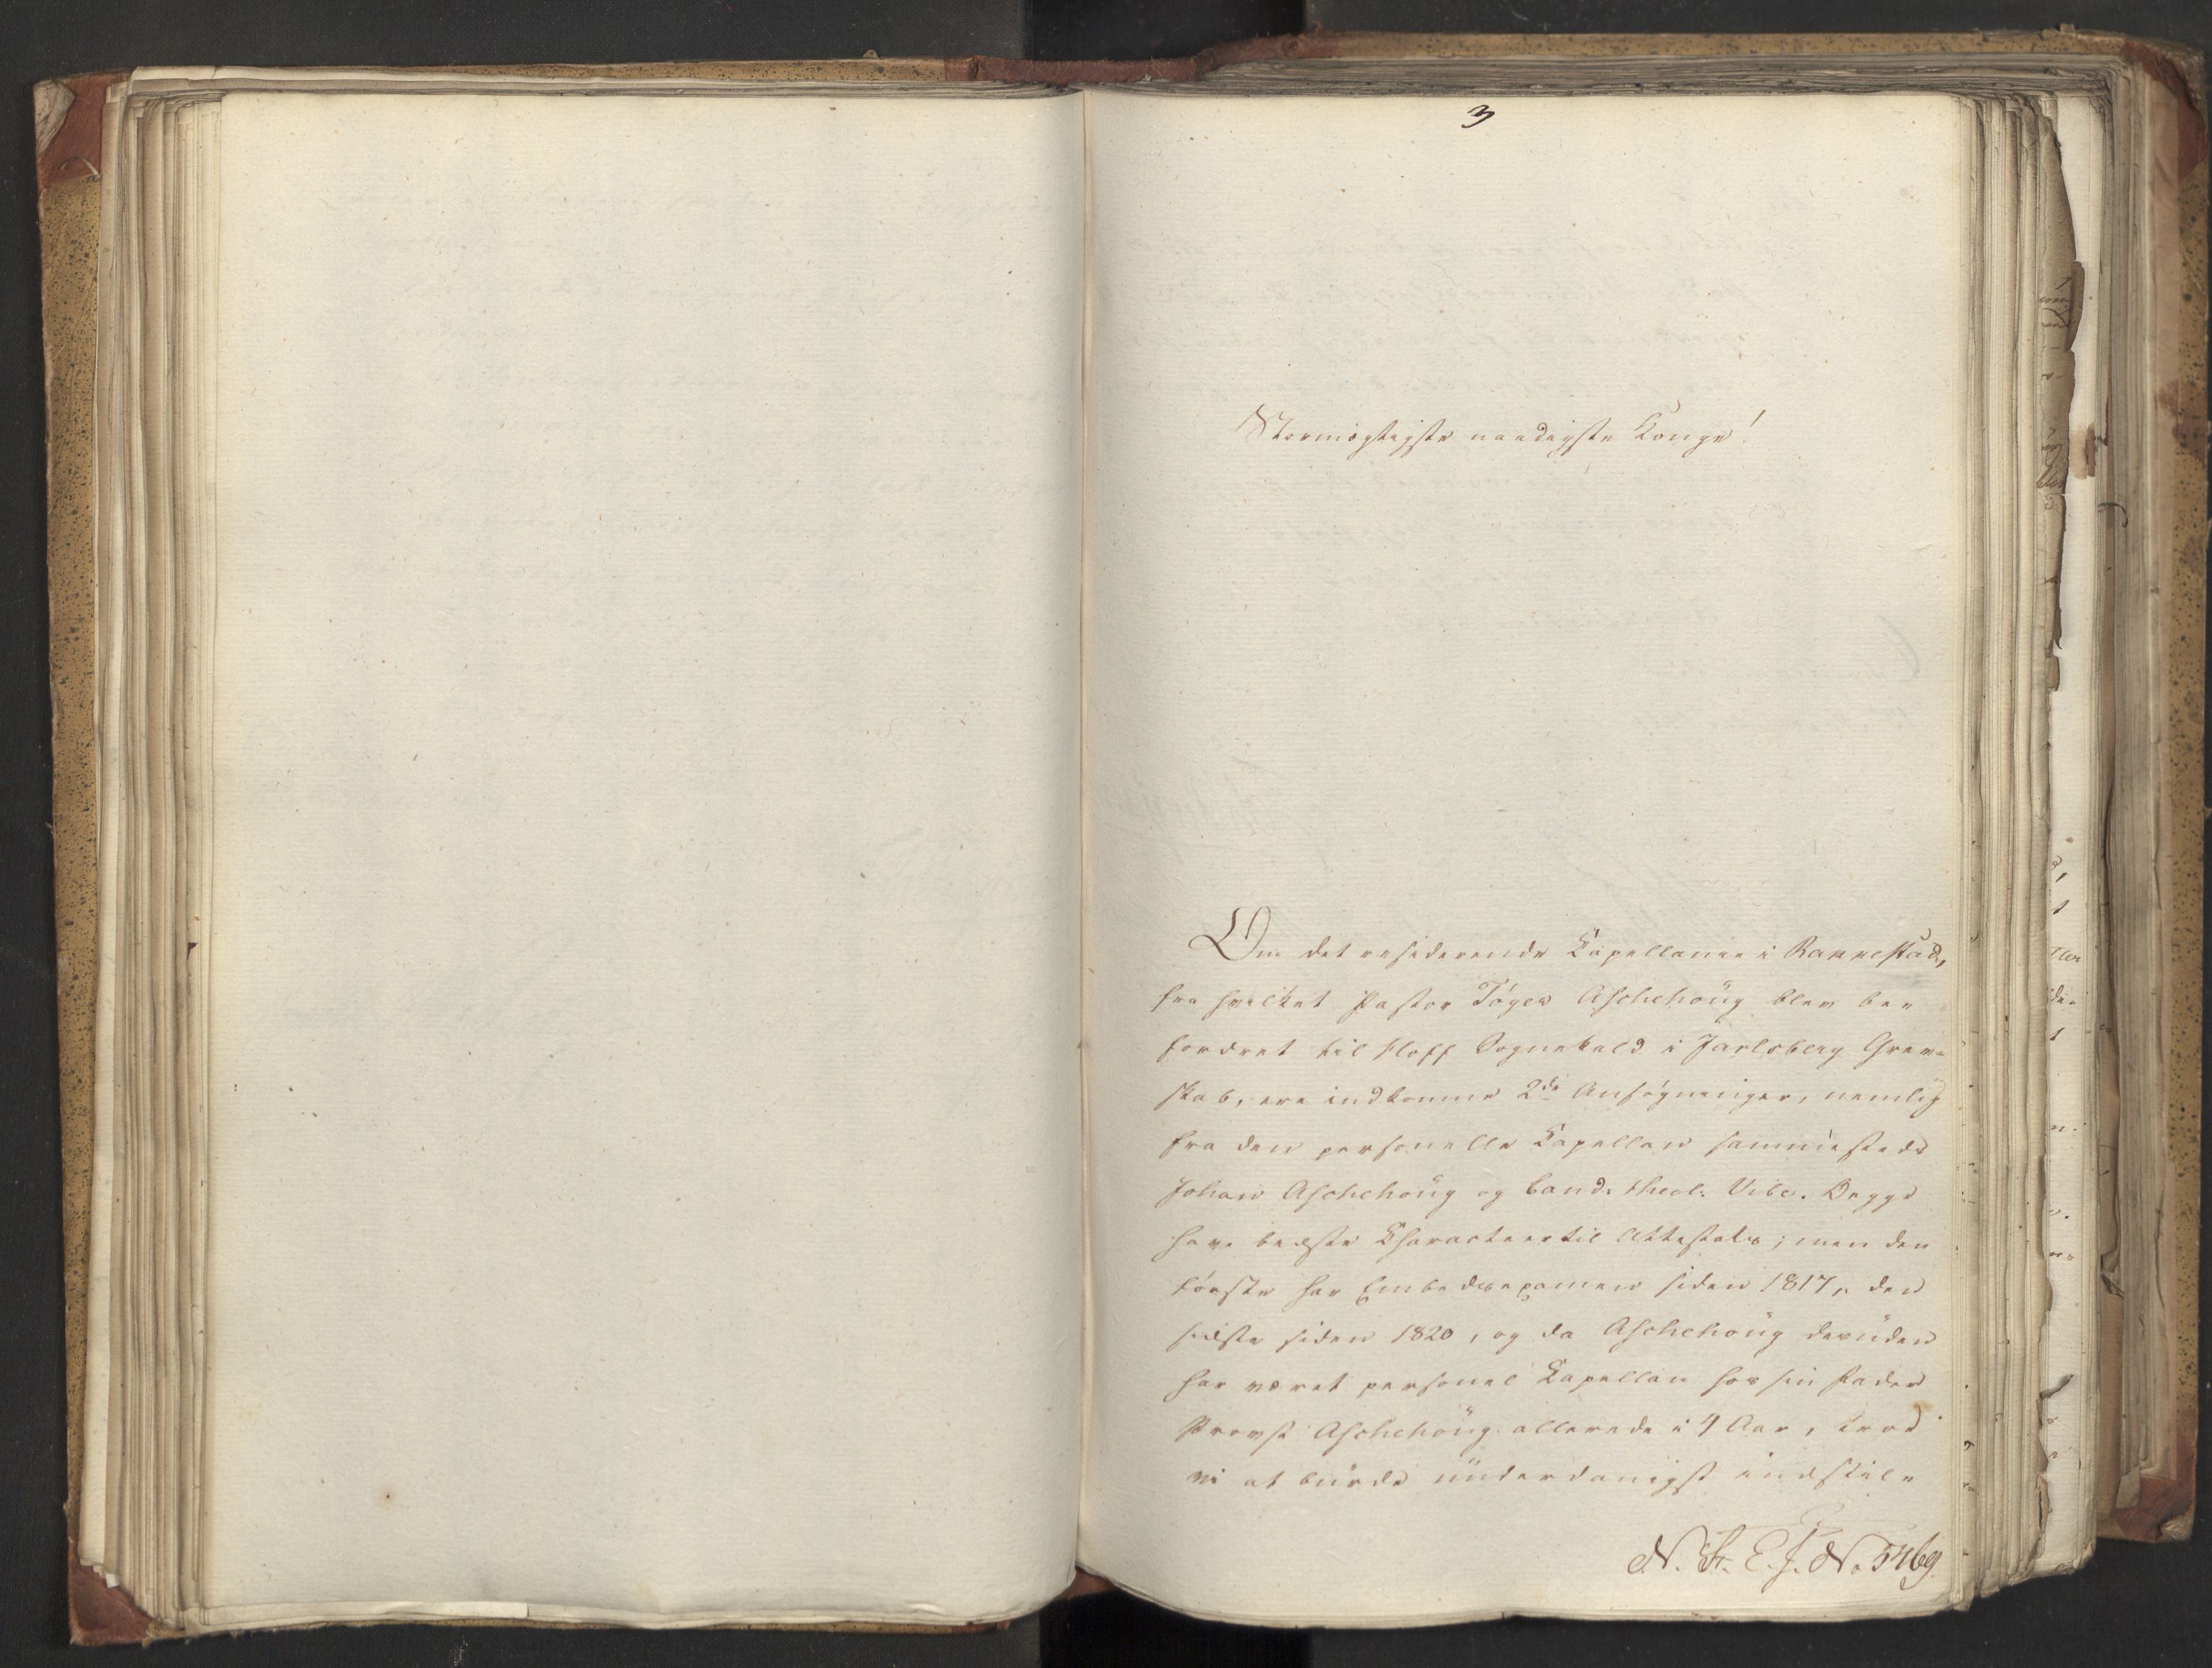 3
Stormægtigste naadigste Konge!
Om det residerende Kapellanie i Rakkestad,
fra hvilket Pastor Töger Aschehoug blev be-
fordret til Hoff Sognekald i Jarlsberg Grev-
skab, ere indkomne 2de Ansøgninger, nemlig
fra den personelle Kapellan sammesteds
Johan Aschehoug og Cand. theol. Vibe. Begge
have bedste Charakteer til Attestats; men den
første har Embedsexamen siden 1817, den
sidste siden 1820, og da Aschehoug desuden
har været personel Kapellan hos sin Fader
Provst Aschehoug allerede i 4 Aar, troe
vi at burde underdanigst indstille
N. St. E. J. No 5469